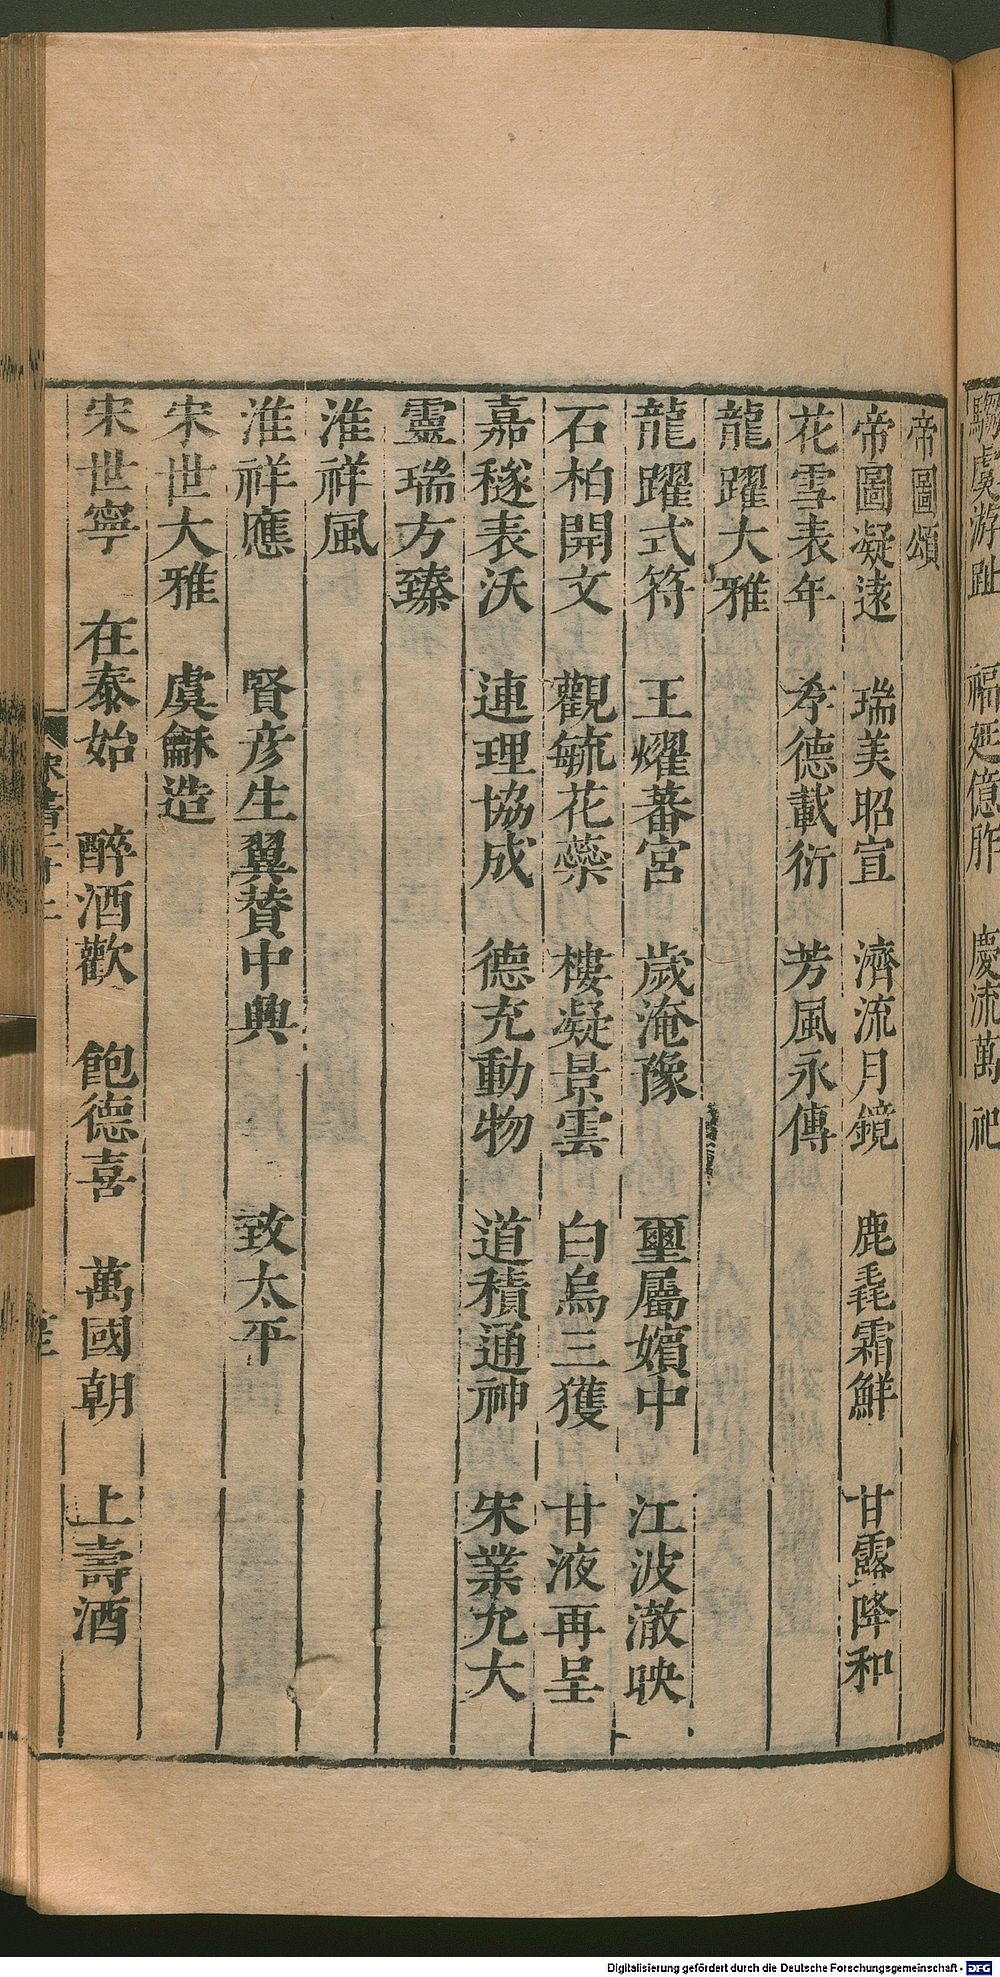 騶虞游趾 福延億胙 慶流萬祀
帝圖頌
帝圖凝遠 瑞美昭宣 濟流月鏡 鹿毳霜鮮 甘露降和
花雪表年 孝德載衍 芳風永傳
龍躍大雅
龍躍式符 王燿蕃宮 歲淹豫 璽屬嬪中 江波澈映
石柏開文 觀毓花蘂 樓凝景雲 白烏三獲 甘液再呈
嘉穟表沃 連理協成 德充動物 道積通神 宋業允大
靈瑞方臻
淮祥風
淮祥應 賢彥生翼贊中興 致太平
宋世大雅 虞龢造
宋世寧 在泰始 醉酒歡 飽德喜 萬國朝 上壽酒
Digitalisierung gefördert durch die Deutsche Forschungsgemeinschaft - DFG